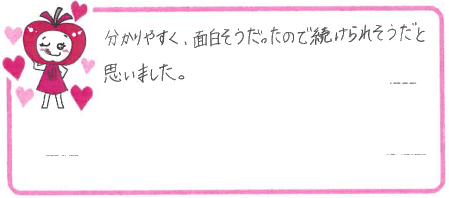 分かりやすく、面白そうだったので続けられそうだと
思いました。